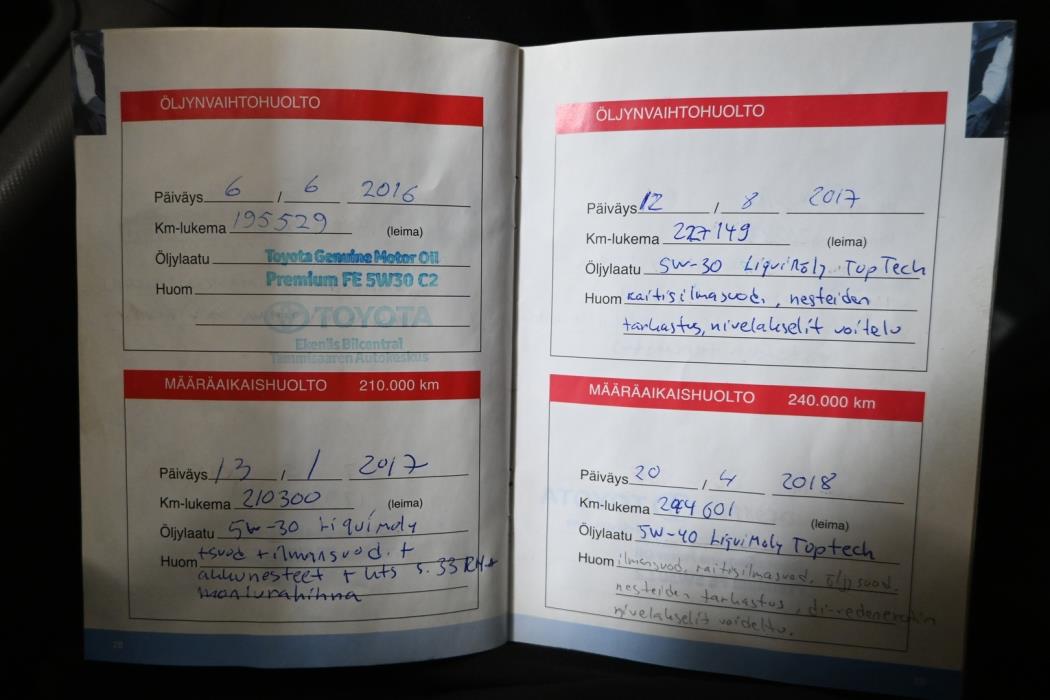 ÖLJYNVAIHTOHUOLTO
Päiväys 6 / 6 2016
Km-lukema 195529 (leima)
Öljylaatu Toyota Genuine Motor Oil
Premium FE 5W30 C2
Huom
TOYOTA
Ekenäs Bilcentral
Tammisaaren Autokeskus
MÄÄRÄAIKAISHUOLTO 210.000 km
Päiväys 13 / 1 2017
Km-lukema 210300 (leima)
Öljylaatu 5W-30 LiquiMoly
Huom +suod +ilmansuod. +
akkunesteet +
28
ÖLJYNVAIHTOHUOLTO
Päiväys 12 / 8 2017
Km-lukema 227149 (leima)
Öljylaatu 5W-30 LiquiMoly TopTech
Huom raitisilmasuod, nesteiden
tarkastus, nivelakselit voitelu
MÄÄRÄAIKAISHUOLTO 240.000 km
Päiväys 20 / 4 2018
Km-lukema 244601 (leima)
Öljylaatu 5W-40 LiquiMoly Toptech
Huom ilmansuod, raitisilmasuod, öljysuod.
nesteiden tarkastus,
nivelakselit voideltu.